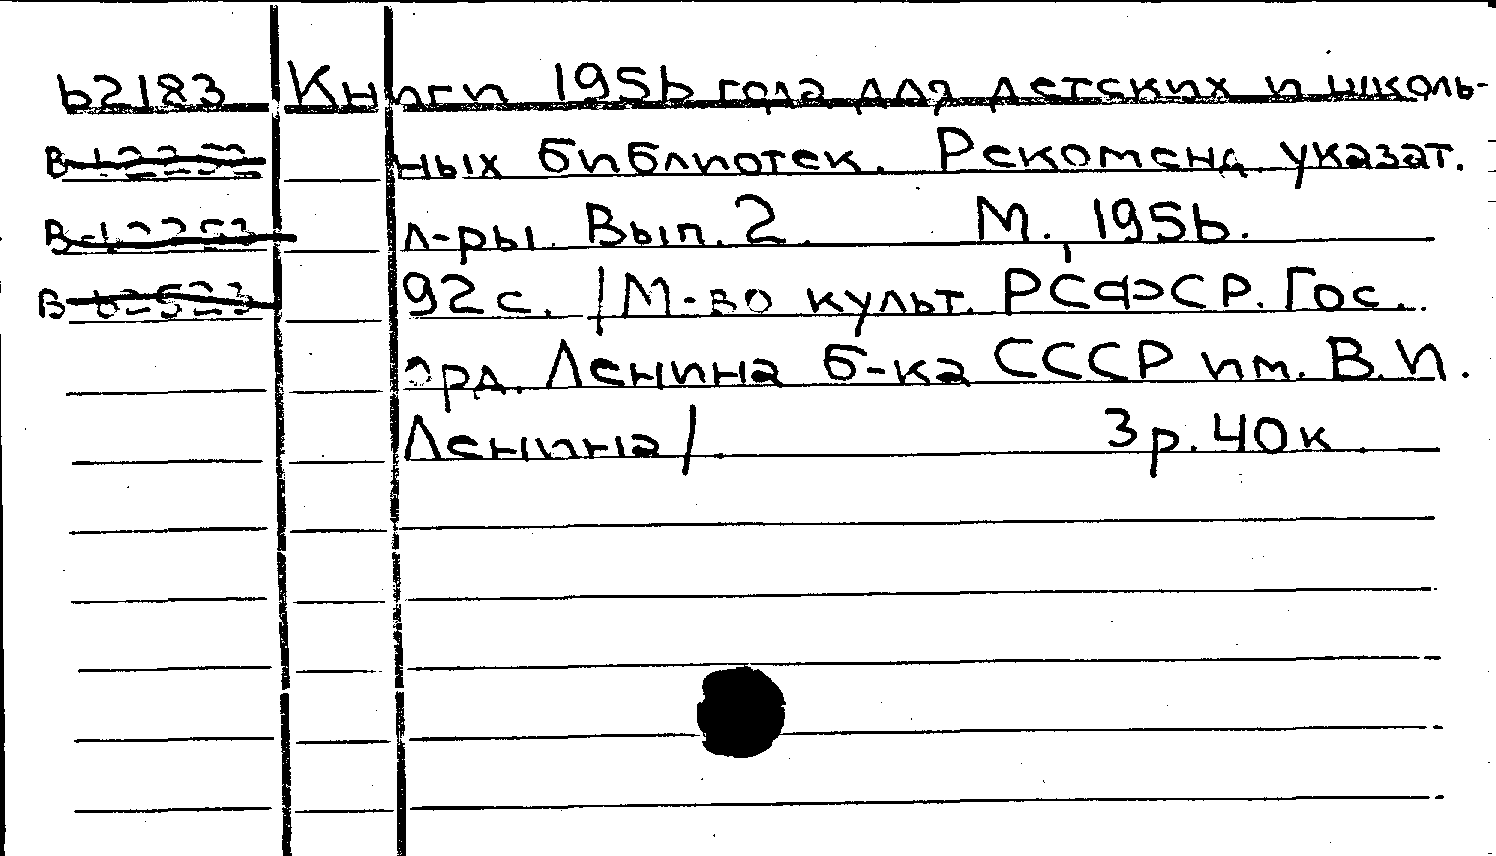 62183 Книги 1956 года для детских и школь-
ных библиотек. Рекоменд. указат.
л-ры. Вып. 2. М., 1956.
92 с. /М-во культ. РСФСР. Гос.
орд. Ленина б-ка СССР им. В. И.
Ленина/. 3 р. 40 к.